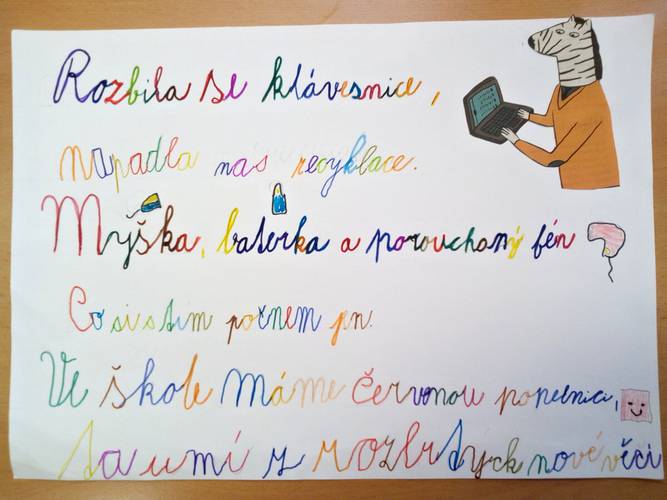 Rozbila se klávesnice,
napadla nás recyklace.
Myška, baterka a porouchaný fén
Co si s tím počnem jen.
Ve škole máme červenou popelnici,
ta umí z rozbitých nové věci